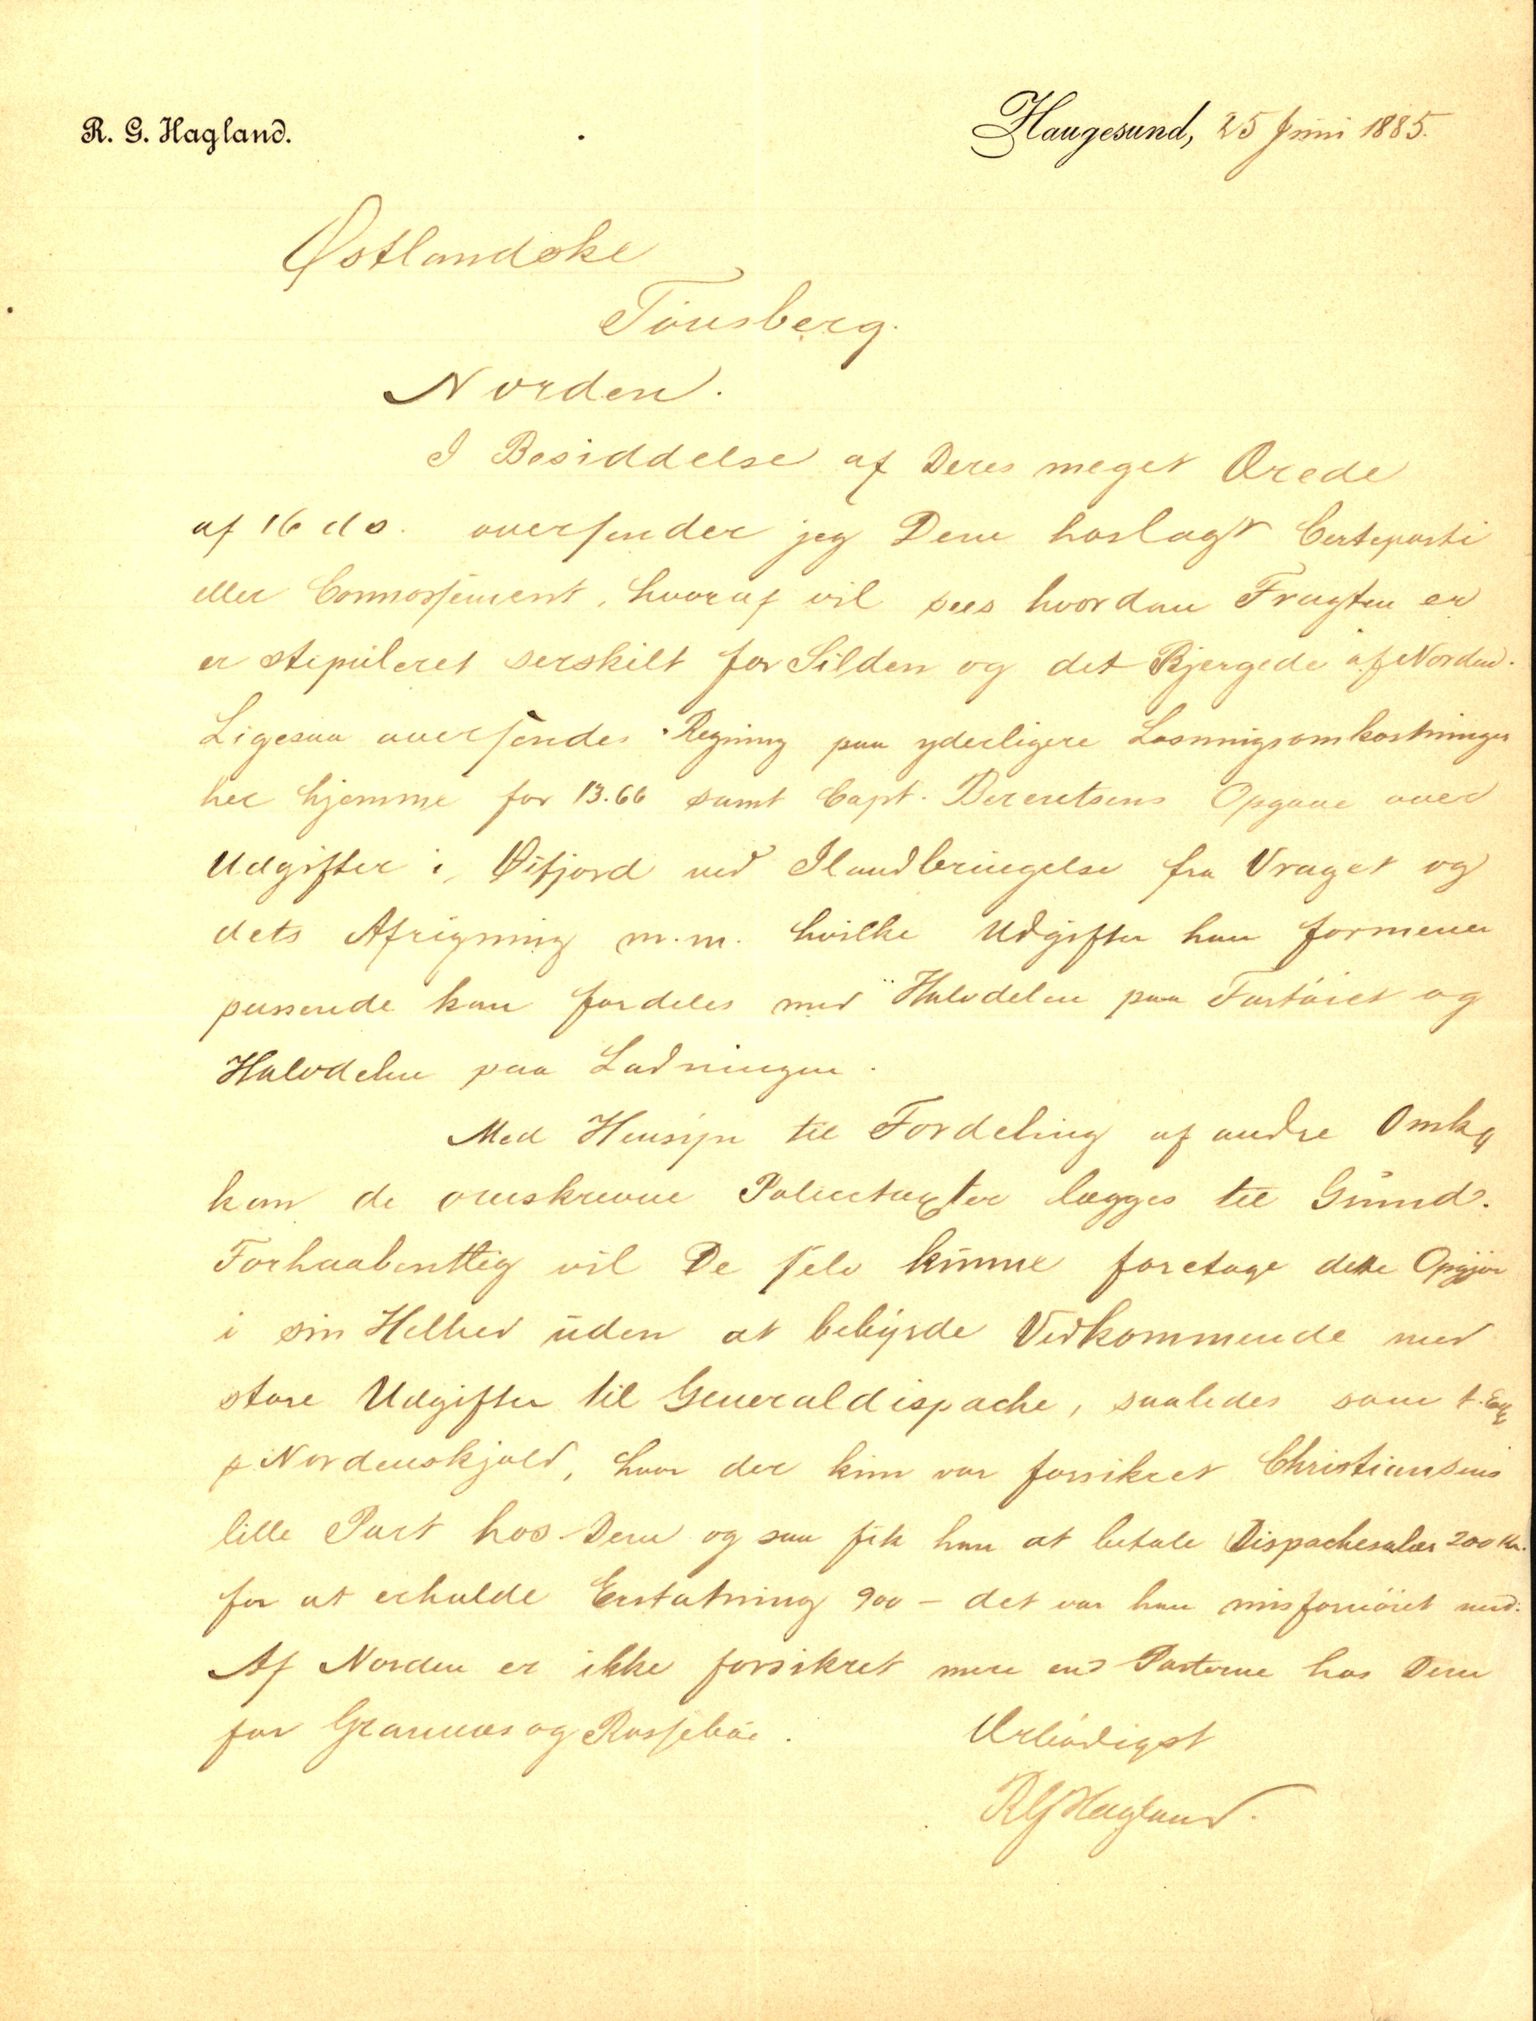 R. G. Hagland.
Haugesund, 25 Juni 1885.
Østlandske
Tönsberg.
Norden.
I Besiddelse af Deres meget Ærede
af 16 ds. oversender jeg Dem hoslagt Certeparti
eller Connossement, hvoraf vil sees hvordan Fragten er
er stipuleret serskilt for Silden og det Bjergede af Norden.
Ligesaa oversendes Regning paa yderligere Losningsomkostninger
her hjemme for 13.66 samt Capt. Berentsens Opgave over
Udgifter i Øfjord ved Ilandbringelse fra Vraget og
dets Afrigning m.m. hvilke Udgifter han formener
passende kan fordeles med Halvdelen paa Fartöiet og
Halvdelen paa Ladningen.
Med Hensyn til Fordeling af andre Omkg
kan de omskrevne Policetaxter lægges til Grund.
Forhaabentlig vil De selv kunne foretage dette Opgjör
i sin Helhed uden at bebyrde Vedkommende med
store Udgifter til Generaldispache, saaledes som t. Ex
p Nordenskjold, hvor der kun var forsikret Christiansens
lille Part hos Dem og saa fik han at betale Dispachesalær 200 Kr.
for at erholde Erstatning 900 - det var han misfornöiet med.
Af Norden er ikke forsikret mere end Parterne hos Dem
for Grannæs og Rosseböe.
Ærbödigst
RGHagland.